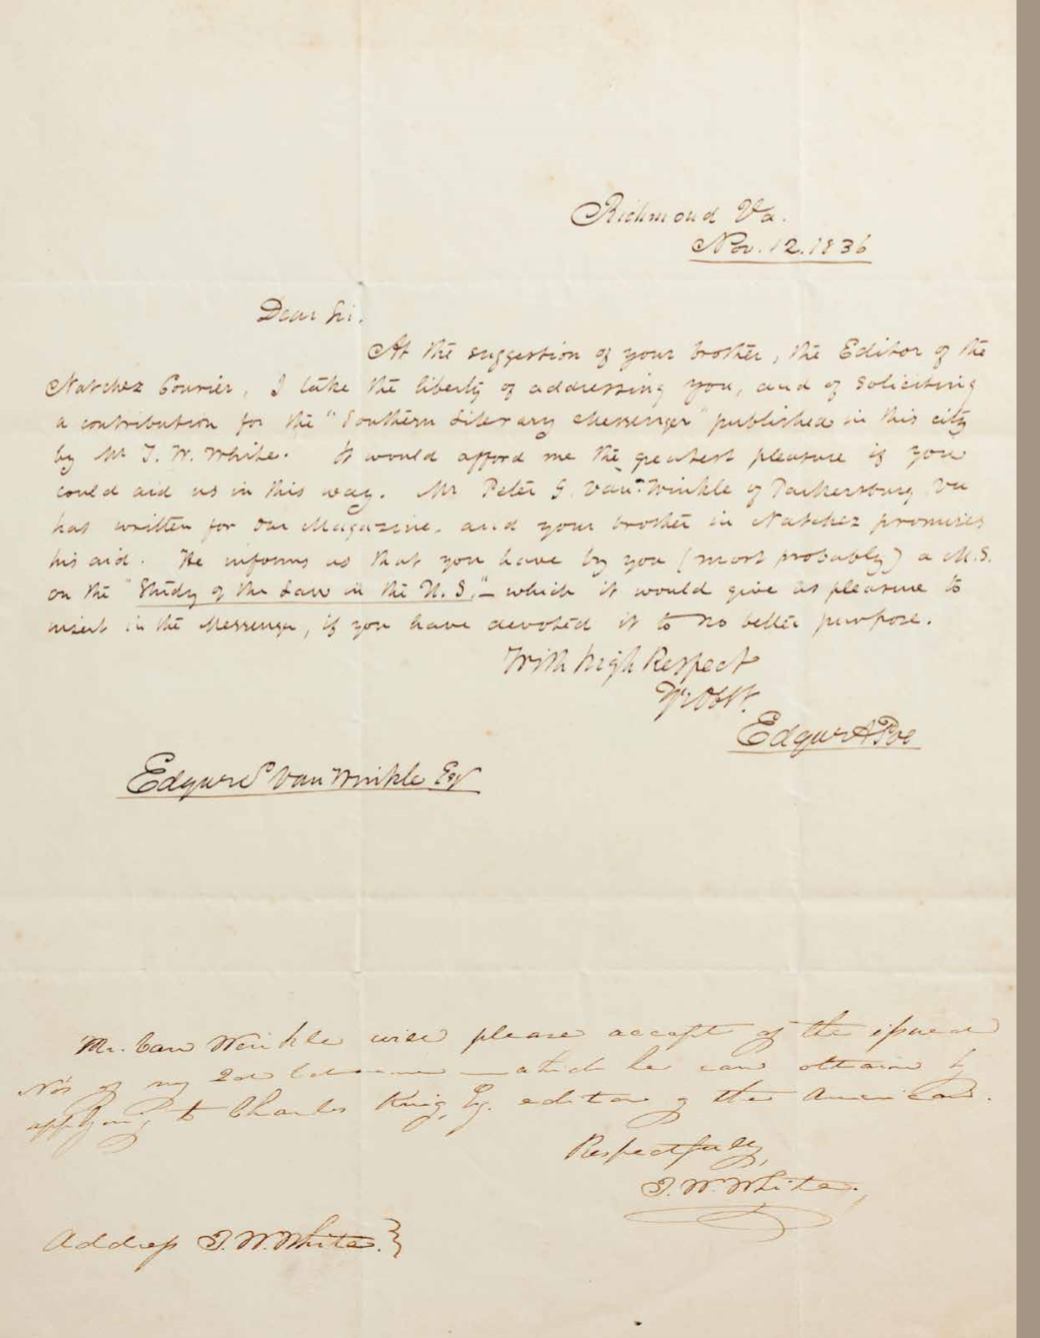 Richmond Va.
Nov. 12. 1836
Dear Sir.
At the suggestion of your brother, the Editor of the
Natchez Courier, I take the liberty of addressing you, and of soliciting
a contribution for the "Southern Literary Messenger" published in this city
by Mr T. W. White. It would afford me the greatest pleasure if you
could aid us in this way. Mr Peter G. Van-Winkle of Parkersburg Va
has written for our Magazine, and your brother in Natchez promises
his aid. He informs us that you have by you (most probably) a M.S.
on the "Study of the Law in the U. S,"— which it would give us pleasure to
insert in the Messenger, if you have devoted it to no better purpose.
With high Respect
Yr. Obt.
Edgar A Poe
Edgar S Van Winkle Esqr
Mr. Van Winkle will please accept of the issued
No's of my 2d volume — which he can obtain by
applying to Charles King, Esq. editor of the American.
Respectfully,
T. W. White.
Address T. W. White.}